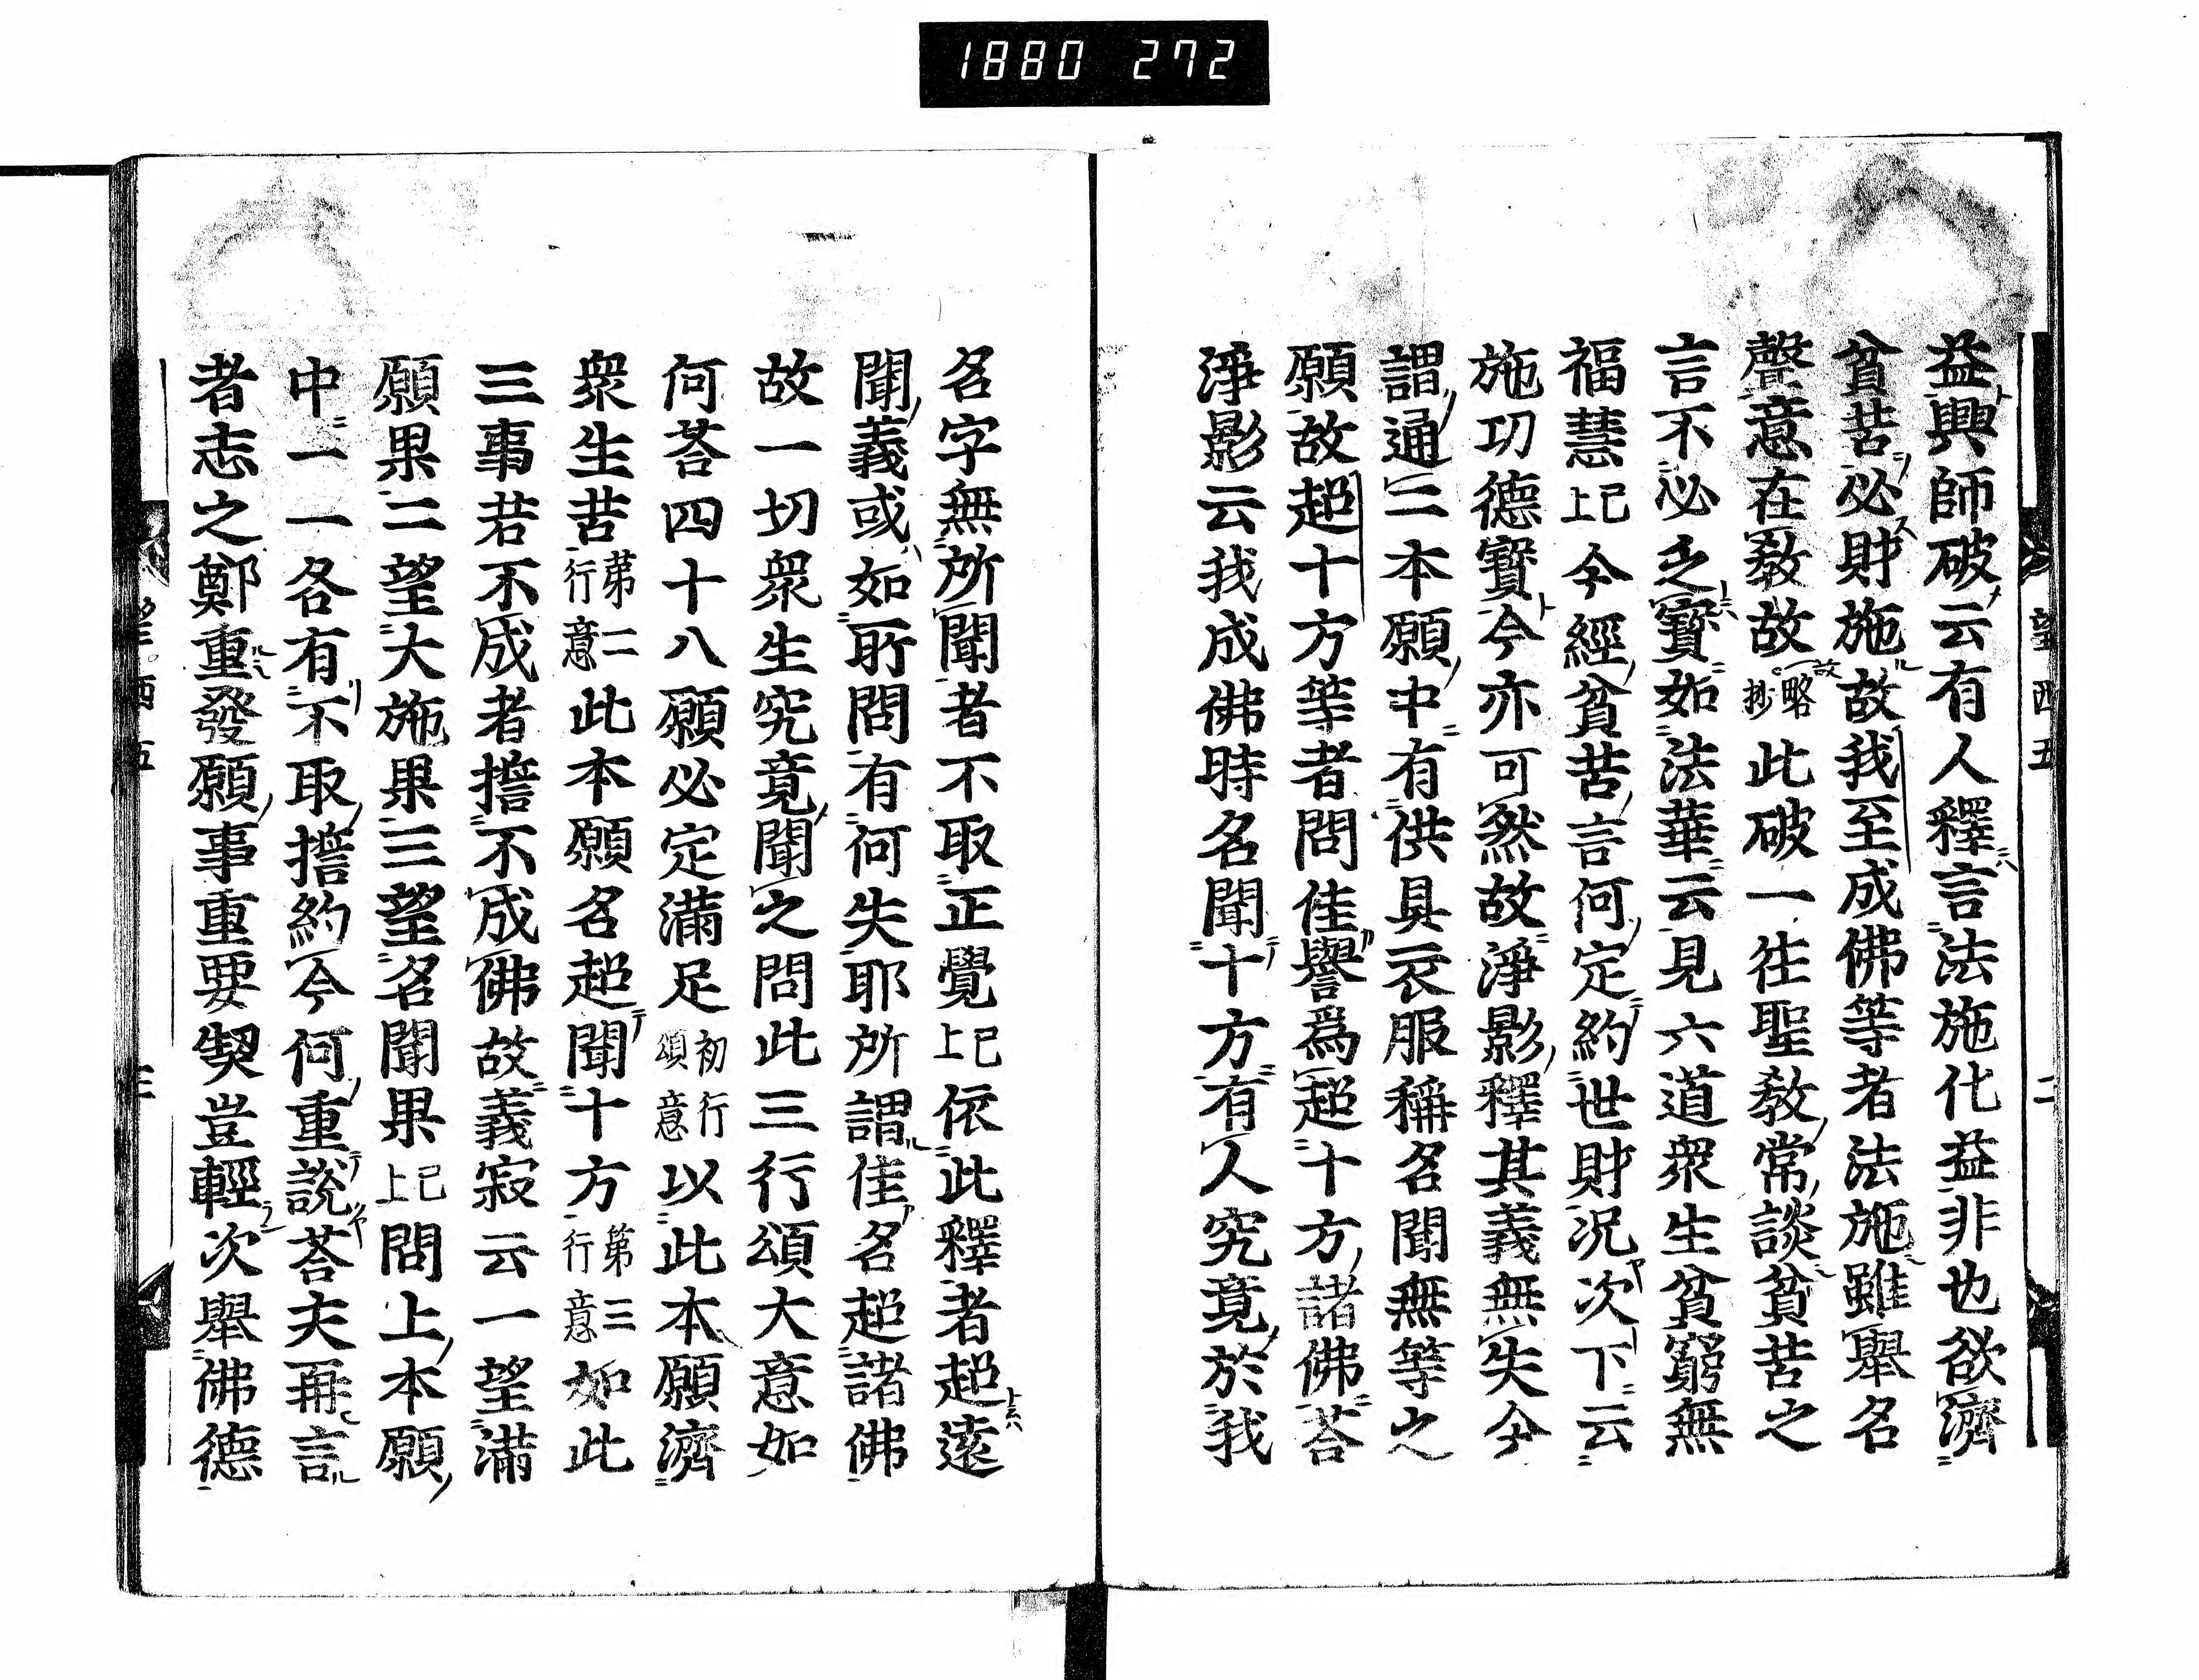 1880 272
望西五 二
益興師破云有人釋言法施化益非也欲濟
貧苦必財施故我至成佛等者法施雖舉名
聲意在敎故略抄此破一往聖敎常談貧苦之
言不必乏寶如法華云見六道衆生貧窮無
福慧已上今經貧苦言何定約世財況次下云
施功德寶今亦可然故淨影釋其義無失今
謂通三本願中有供具衣服稱名聞無等之
願故超十方等者問佳譽爲超十方諸佛荅
淨影云我成佛時名聞十方有人究竟於我
名字無所聞者不取正覺已上依此釋者超遠
聞義或如所問有何失耶所謂佳名超諸佛
故一切衆生究竟聞之問此三行頌大意如
何荅四十八願必定滿足初行頌意以此本願濟
衆生苦第二行意此本願名超聞十方第三行意如此
三事若不成者擔不成佛故義寂云一望滿
願果二望大施果三望名聞果已上問上本願
中一一各有不取擔約今何重說荅夫再言
者志之鄭重發願事重要契豈輕次舉佛德